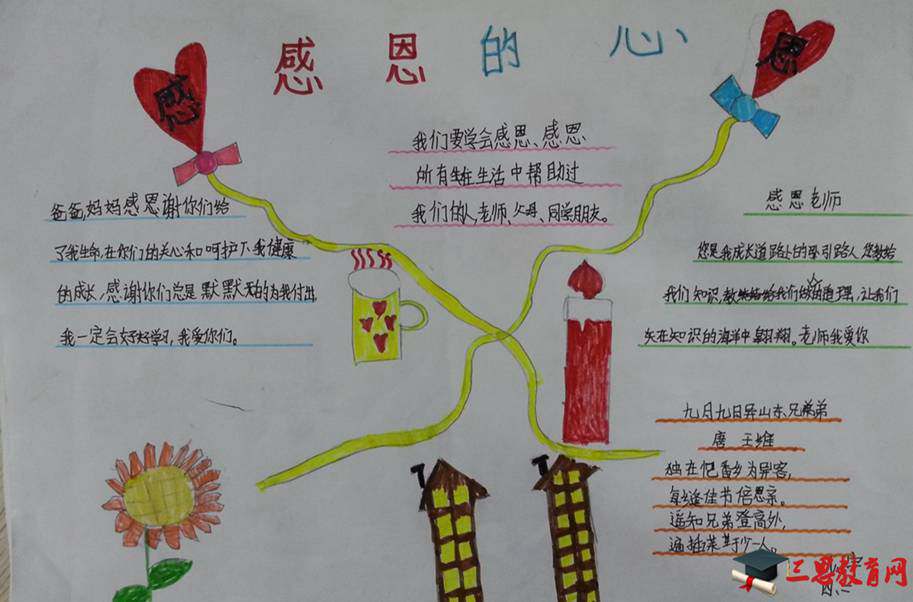 感恩的心
感
恩
我们要学会感恩、感恩
所有在生活中帮助过
我们的人,老师、父母、同学朋友。
爸爸妈妈感恩谢你们给
了我生命,在你们的关心和呵护下,我健康
的成长,感谢你们总是默默无的为我付出
我一定会好好学习,我爱你们。
感恩老师
您是我成长道路上的牵引路人您教给
我们知识,教给我们做道理,让我们
矢在知识的海洋中翱翔。老师我爱你
九月九日异山东兄弟
唐 王维
独在他香乡为异客,
每逢佳节倍思亲。
遥知兄弟登高处,
遍插茱萸少一人。
三思教育网